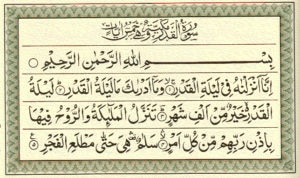 سُوْرَةُ الْقَدْرِ مَكِّيَّةٌ وَّهِيَ خَمْسُ اٰيَاتٍ
بِسْمِ اللّٰهِ الرَّحْمٰنِ الرَّحِيْمِ
اِنَّاۤ اَنْزَلْنٰهُ فِيْ لَيْلَةِ الْقَدْرِ ۝ وَمَاۤ اَدْرٰىكَ مَا لَيْلَةُ الْقَدْرِ ۝ لَيْلَةُ
الْقَدْرِ خَيْرٌ مِّنْ اَلْفِ شَهْرٍ ۝ تَنَزَّلُ الْمَلٰٓئِكَةُ وَالرُّوْحُ فِيْهَا
بِاِذْنِ رَبِّهِمْ مِّنْ كُلِّ اَمْرٍ ۝ سَلٰمٌ هِيَ حَتّٰى مَطْلَعِ الْفَجْرِ ۝